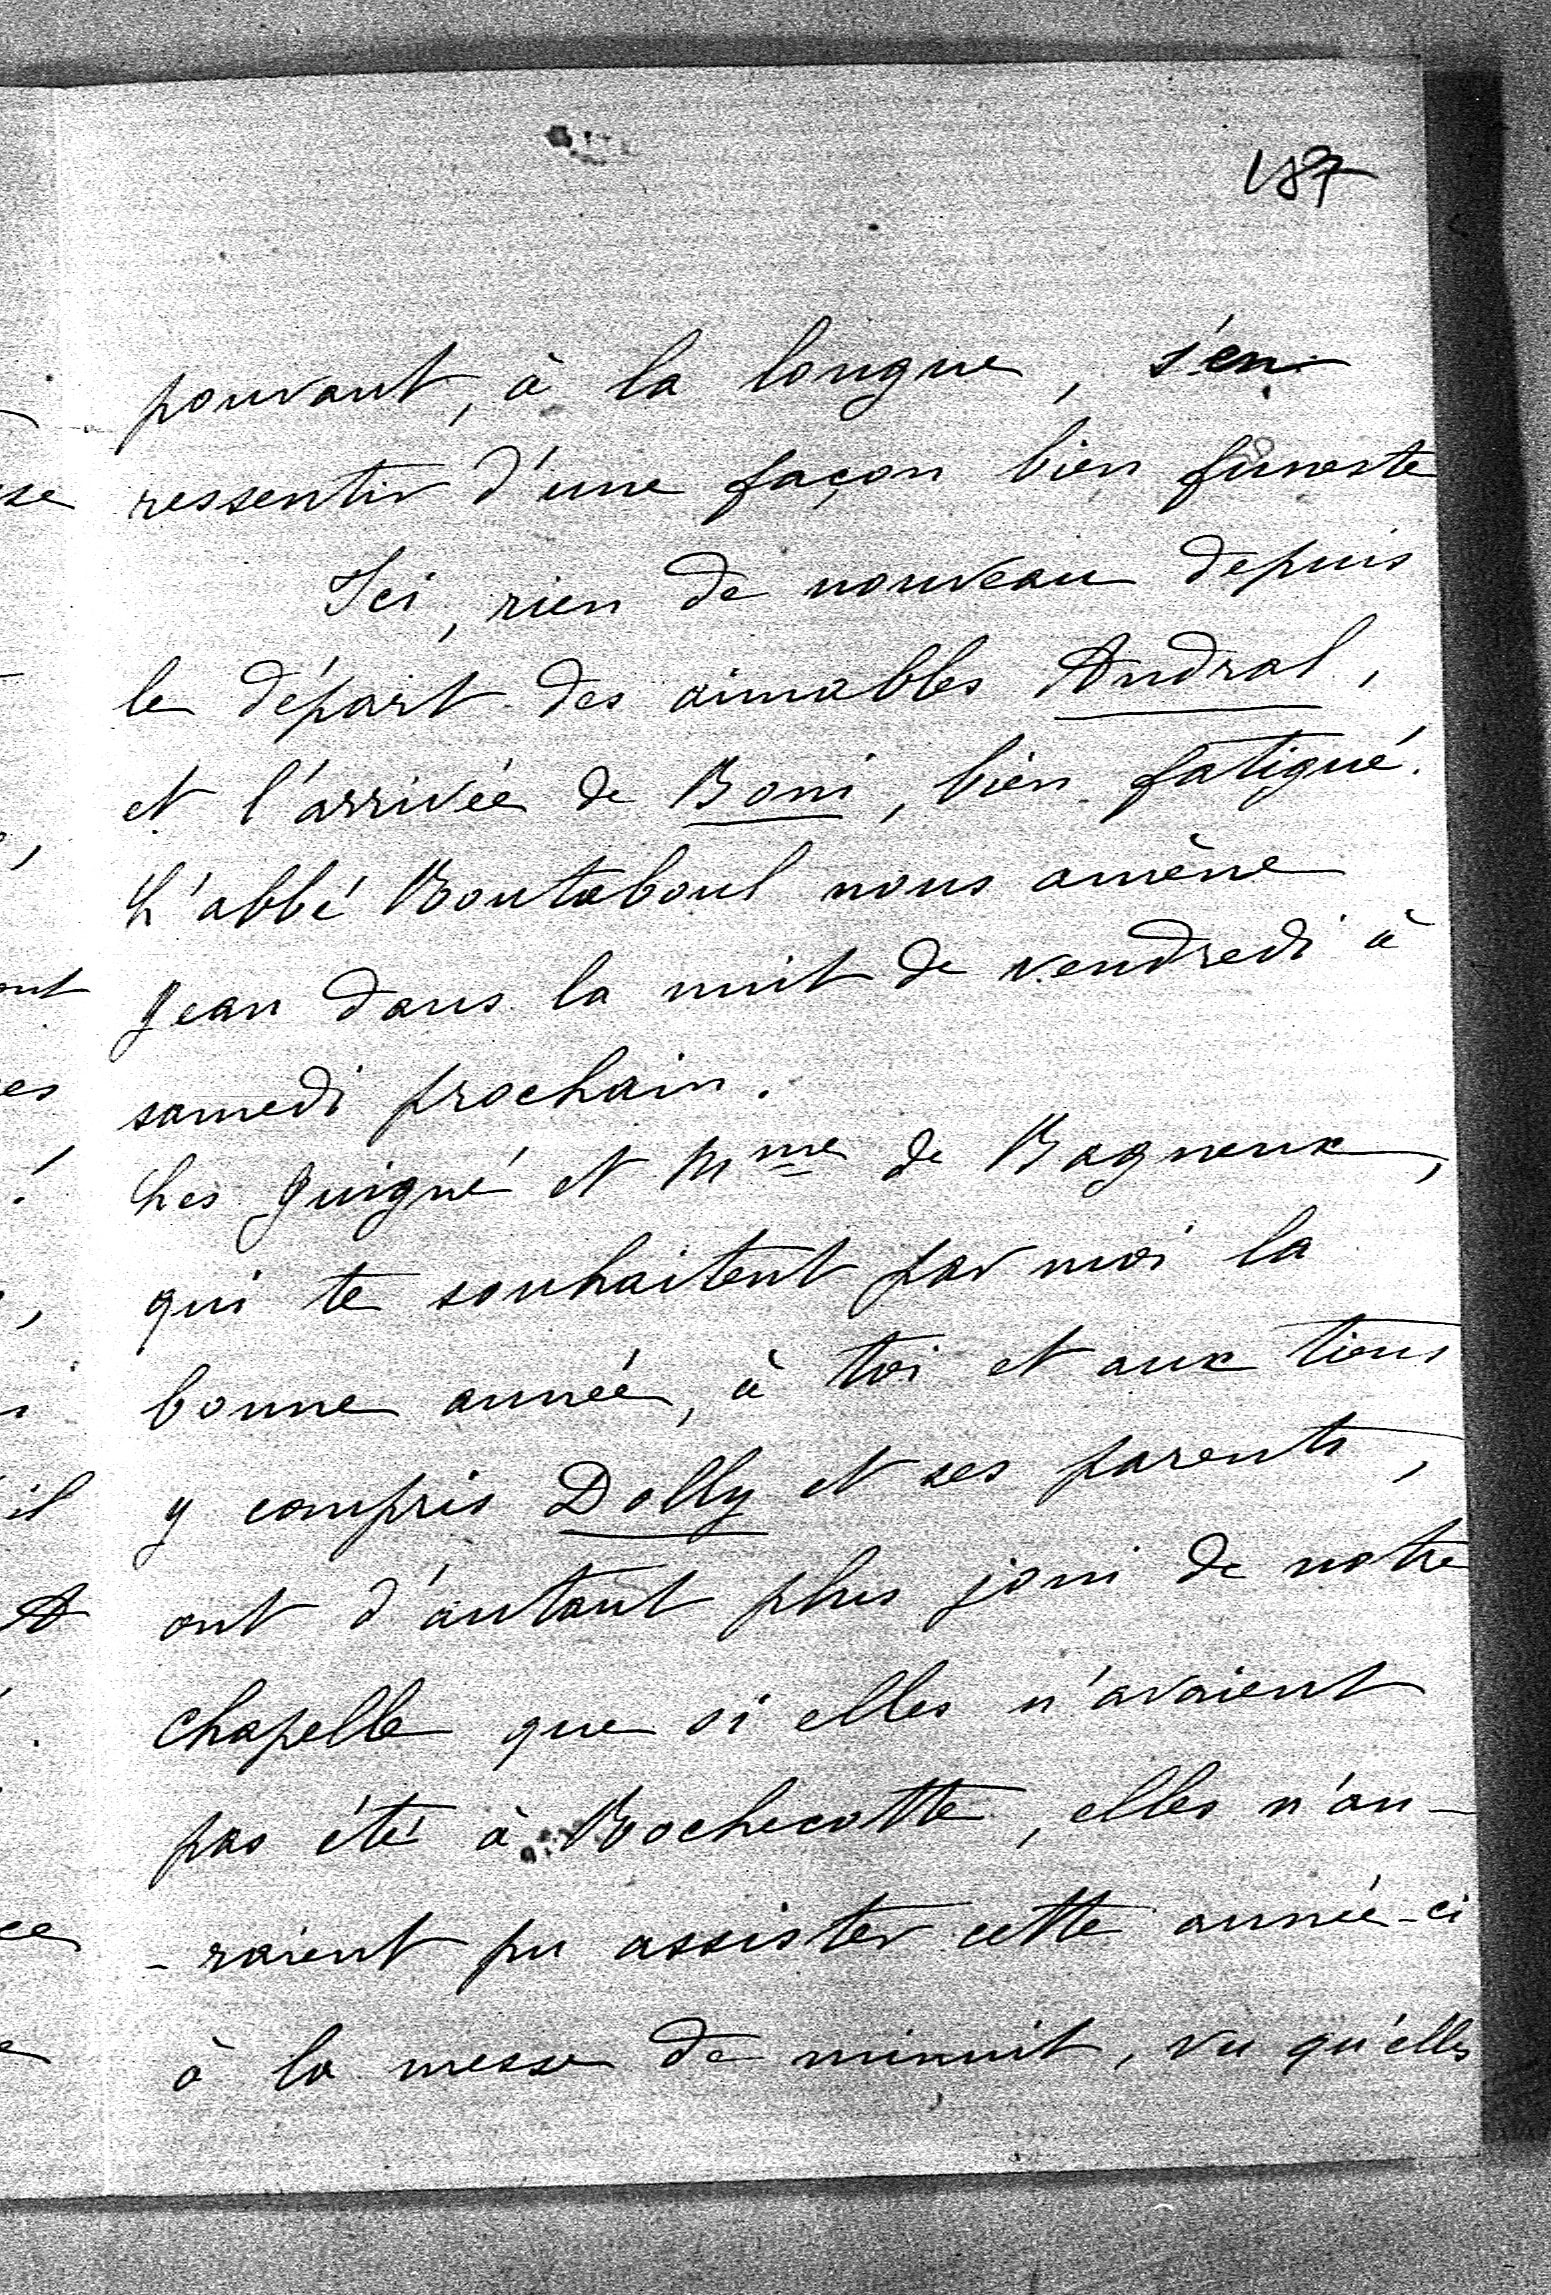 187
pouvant, à la longue, s'en
ressentir d'une façon bien funeste
Ici, rien de nouveau depuis
le départ des aimables Andral,
et l'arrivée de Boni, bien fatigué.
L'abbé Bouteboul nous amène
Jean dans la nuit de vendredi à
samedi prochain.
Les Juigné et Mme de Bagneux,
qui te souhaitent par moi la
bonne année, à toi et aux tiens
y compris Dolly et ses parents,
ont d'autant plus joui de notre
chapelle que si elles n'avaient
pas été à Rochecotte, elles n'au-
-raient pu assister cette année-ci
à la messe de minuit, vu qu'elles